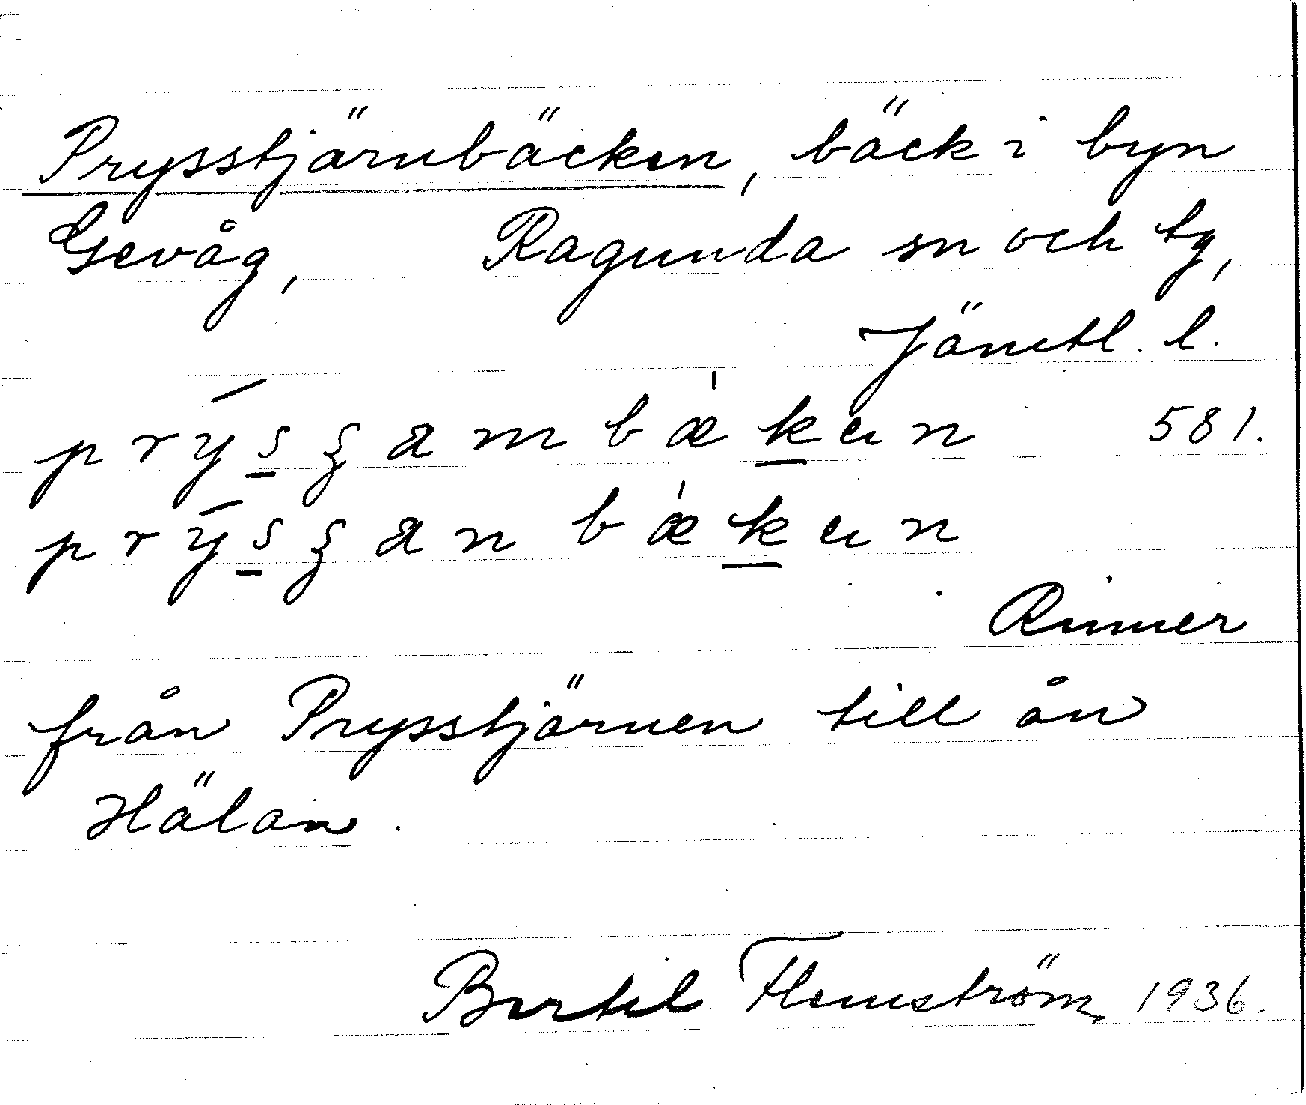 Prysstjärnbäcken, bäck i byn
Gevåg, Ragunda sn och tg,
Jämtl. l.
prȳsʒambækun 581.
prȳsʒanbækun
Rinner
från Prysstjärnen till ån
Hälan.
Bertil Flemström 1936.